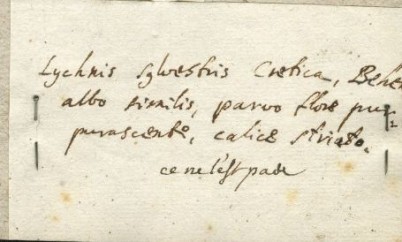 Lychnis sylvestris Cretica, Behen
albo similis, parvo flore pur-
purascente, calice striato.
ce nelest pas